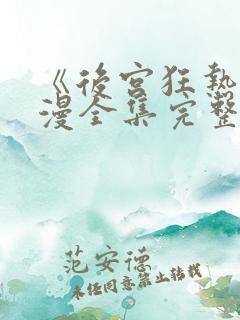 《後宮狂熱
漫全集完整
范安德
未经同意禁止转载